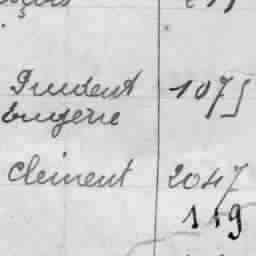 Prudent 1075
Eugene
Clement 2047
119